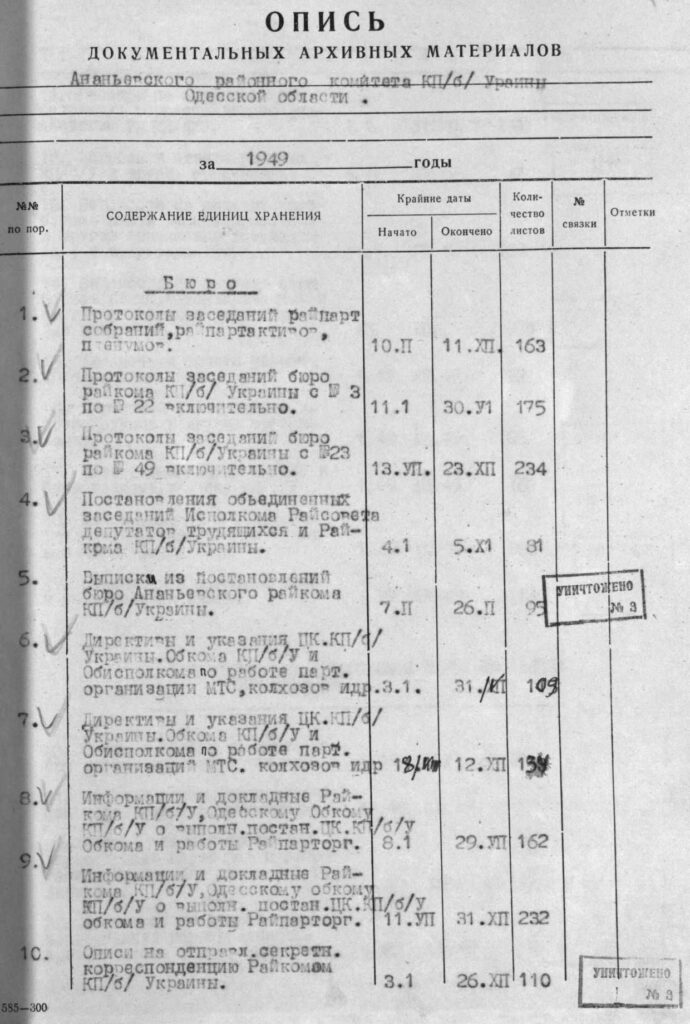 ОПИСЬ
ДОКУМЕНТАЛЬНЫХ АРХИВНЫХ МАТЕРИАЛОВ
Ананьевского районного комитета КП/б/ Ураины
Одесской области .
за 1949 годы
№№ по пор.
СОДЕРЖАНИЕ ЕДИНИЦ ХРАНЕНИЯ
Крайние даты
Начато
Окончено
Коли-
чество
листов
№
связки
Отметки
Бюро
1.
Протоколы заседаний райпарт
собраний,райпартактивов,
пленумов. 10.П 11.ХП. 163
2.
Протоколы заседаний бюро
райкома КП/б/ Украины с № 3
по № 22 включительно. 11.1 30.У1 175
3.
Протоколы заседаний бюро
райкома КП/б/Украины с №23
по № 49 включительно. 13.УП. 23.ХП 234
4.
Постановления объединенных
заседаний Исполкома Райсовета
депутатов трудящихся и Рай-
кома КП/б/Украины. 4.1 5.Х1 81
5.
Выписки из постановлений
бюро Ананьевского райкома
КП/б/Украины. 7.П 26.П 95
УНИЧТОЖЕНО
№ 3
6.
Директивы и указания ЦК.КП/б/
Украины.Обкома КП/б/У и
Обисполкома по работе парт.
организации МТС,колхозов идр. 3.1. 31.
7.
Директивы и указания ЦК.КП/б/
Украины.Обкома КП/б/У и
Обисполкома по работе парт.
организаций МТС. колхозов идр 12.ХП
8.
Информации и докладные Рай-
кома КП/б/У,Одесскому Обкому
КП/б/У о выполн.постан.ЦК.КП/б/У
Обкома и работы Райпарторг. 8.1 29.УП 162
9.
Информации и докладные Рай-
кома КП/б/У,Одесскому обкому
КП/б/У о выполн. постан.ЦК.КП/б/У
обкома и работы Райпарторг. 11.УП 31.ХП 232
10.
Описи на отправл.секретн.
корреспонденцию Райкомом
КП/б/ Украины. 3.1 26.ХП 110
УНИЧТОЖЕНО
№ 3
585—300